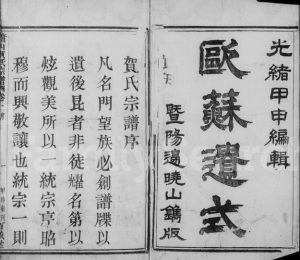 光緒甲申編輯
歐蘇遺式
暨陽過曉山鐫版
賀氏宗譜序
凡名門望族必創譜牒以
遺後昆者非徒耀名第以
炫觀美所以一統宗序昭
穆而興敬讓也統宗一則